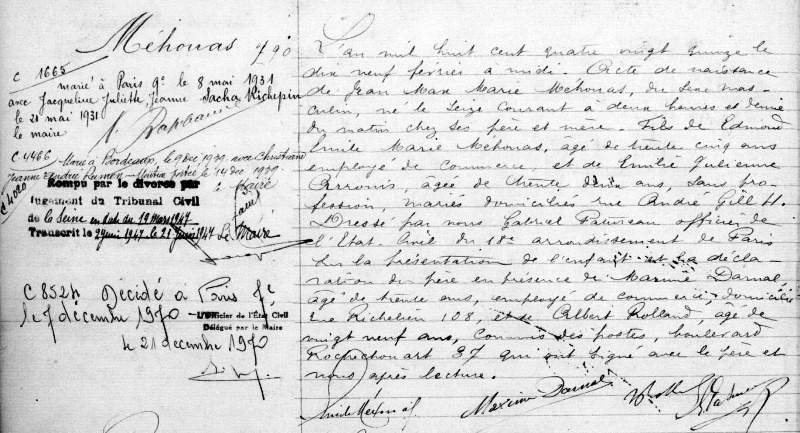 Méhouas 790
C 1665
marié à Paris 9e le 8 mai 1931
avec Jacqueline Juliette Jeanne Sacha Richepin
le 21 mai 1931
le maire
C 4466 Marié à Bordeaux, le 9 Déc 1939, avec
Jeanne Andrée
le 14 déc 1939
C 4020
Rompu par le divorce par
jugement du Tribunal Civil
de la Seine en date du 19 Mars 1947
Transcrit le 2 juin 1947 le 21 Juin 1947 Le Maire
C 852h Décédé à Paris 7e
le 7 décembre 1970
L'Officier de l'État Civil
Délégué par le Maire
le 21 décembre 1970
L'an mil huit cent quatre vingt quinze le
dix neuf février à midi. Acte de naissance
de Jean Max Marie Méhouas, du sexe mas-
culin, né le seize courant à deux heures et demie
du matin chez ses père et mère. Fils de Edmond
Emile Marie Méhouas, agé de trente cinq ans
employé de commerce, et de Emilie Julienne
âgée de trente deux ans, sans pro-
fession, mariés domiciliés rue André Gill 11.
Dressé par nous Gabriel officier de
l'Etat-Civil du 18e arrondissement de Paris
sur la présentation de l'enfant et la décla-
ration du père en présence de Maxime Darnal,
agé de trente ans, employé de commerce, domicilié
rue Richelieu 108, et de Albert Rolland, agé de
vingt neuf ans, Commis des postes, boulevard
Rochechouart 37 qui ont signé avec le père et
nous après lecture.
Maxime Darnal